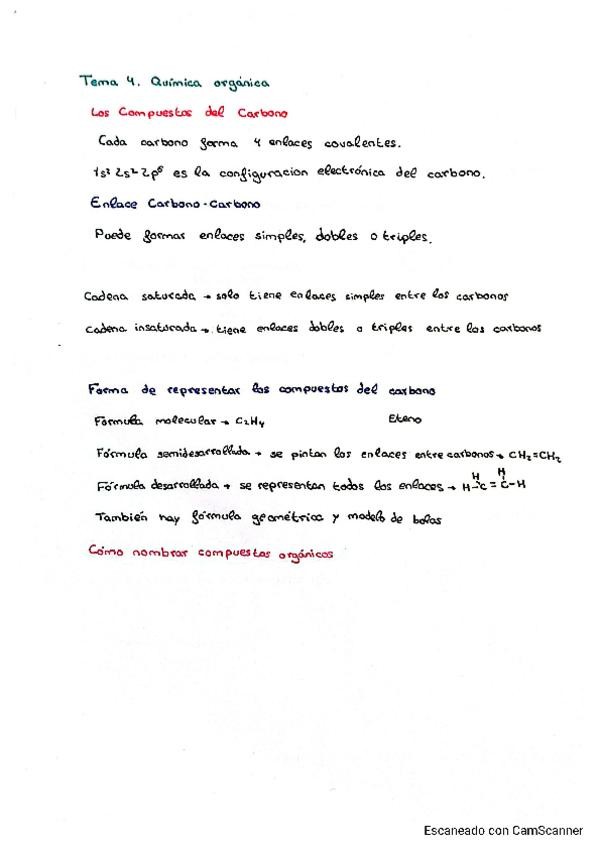 Tema 4. Química orgánica
Los Compuestos del Carbono
Cada carbono forma 4 enlaces covalentes.
1s² 2s² 2p⁶ es la configuracion electrónica del carbono.
Enlace Carbono-Carbono
Puede formar enlaces simples, dobles o triples.
Cadena saturada → solo tiene enlaces simples entre los carbonos
Cadena insaturada → tiene enlaces dobles o triples entre los carbonos
Forma de representar los compuestos del carbono
Fórmula molecular → C₂H₄ Eteno
Fórmula semidesarrollada → se pintan los enlaces entre carbonos → CH₂=CH₂
H H
Fórmula desarrollada → se representan todos los enlaces → H-C=C-H
También hay fórmula geométrica y modelo de bolas
Cómo nombrar compuestos orgánicos
Escaneado con CamScanner